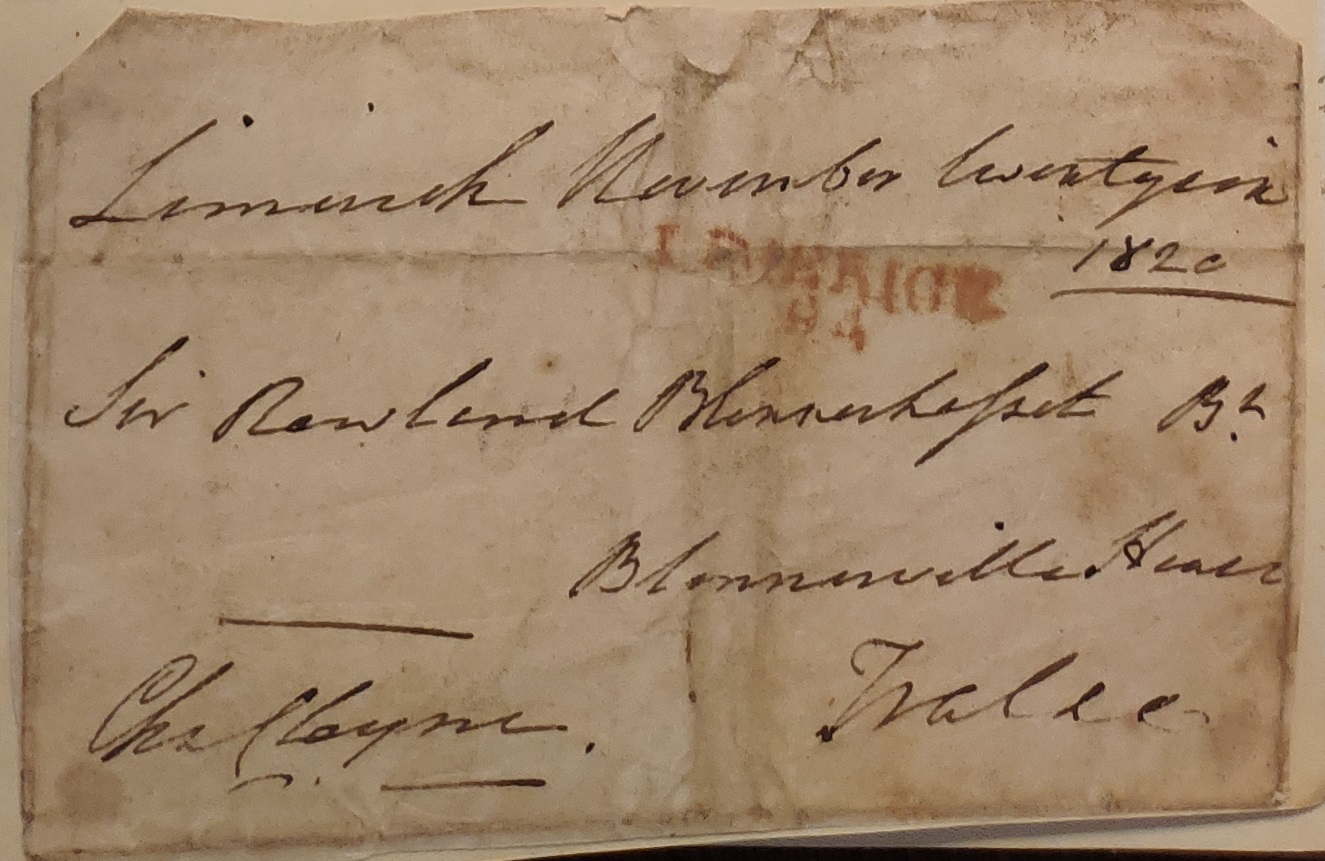 Limerick November twentysix
1820
LIMERICK
94
Sir Rowland Blennerhasset Bt.
Blennerville House
Tralee
Chs Cloyne.